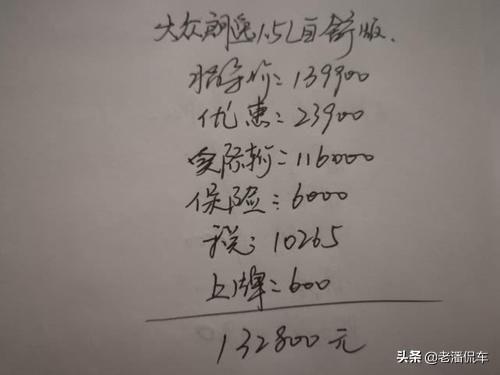 大众朗逸1.5L自舒版.
指导价:139900
优惠:23900
实际价:116000
保险:6000
税:10265
上牌:600
132800元
头条 @老潘侃车